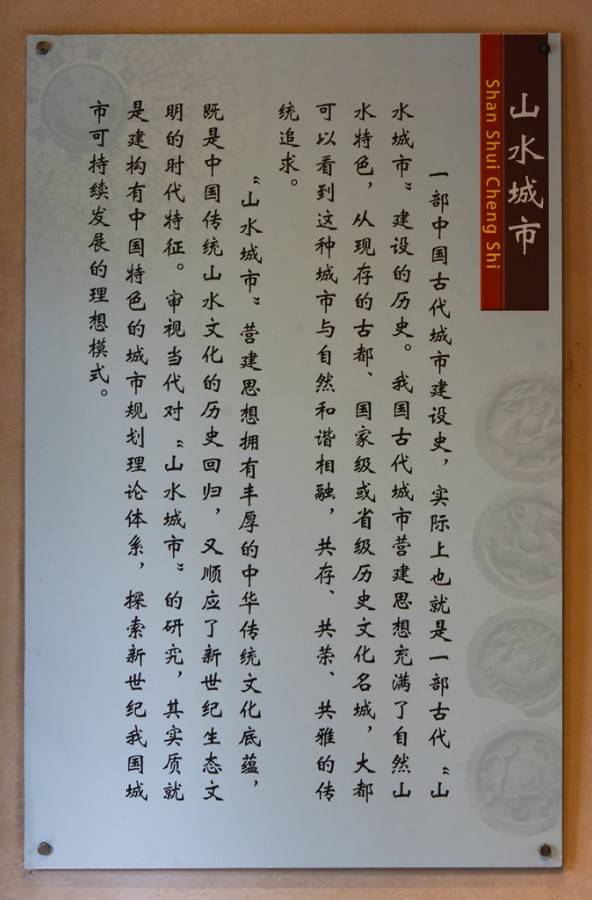 山水城市
Shan Shui Cheng Shi
一部中国古代城市建设史，实际上也就是一部古代“山
水城市”建设的历史。我国古代城市营建思想充满了自然山
水特色，从现存的古都、国家级或省级历史文化名城，大都
可以看到这种城市与自然和谐相融，共存、共荣、共雅的传
统追求。
“山水城市”营建思想拥有丰厚的中华传统文化底蕴，
既是中国传统山水文化的历史回归，又顺应了新世纪生态文
明的时代特征。审视当代对“山水城市”的研究，其实质就
是建构有中国特色的城市规划理论体系，探索新世纪我国城
市可持续发展的理想模式。